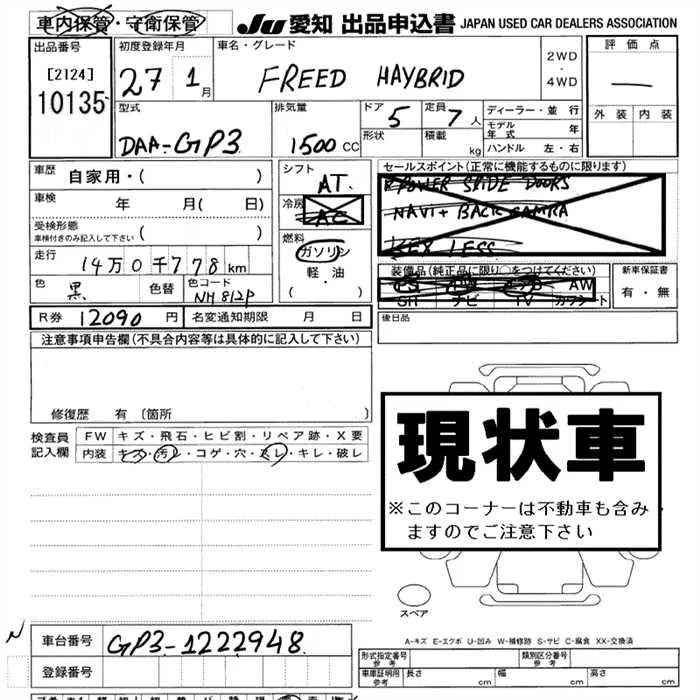 車内保管・守衛保管 JU 愛知 出品申込書 JAPAN USED CAR DEALERS ASSOCIATION
出品番号 初度登録年月 車名・グレード 評価点
[2124] 27 1月 FREED HAYBRID 2WD・4WD —
10135 外装 内装
型式 排気量 ドア 5 定員 7人 ディーラー・並 行
DAA-GP3 1500 CC 形状 積載 kg モデル年式 年
ハンドル 左・右
車歴 自家用・( ) シフト AT. セールスポイント(正常に機能するものに限ります)
車検 年 月( 日) 冷房 AC POWER SRIDE DOORS
NAVI + BACK CAMRA
受検形態 ( ) 燃料 KEY LESS
車検付きのみ記入して下さい ガソリン
走行 14万0千778km 軽油 装備品(純正品に限り○をつけてください) 新車保証書
色 黒 色替 色コード NH812P ( ・ ) PS PW サンルーフ AW 有・無
SH ナビ TV カワシート
R券 12090円 名変通知期限 月 日 後日品
注意事項申告欄(不具合内容等は具体的に記入して下さい)
修復歴 有(箇所 )
検査員記入欄 FW キズ・飛石・ヒビ割・リペア跡・X要
内装 キズ・汚レ・コゲ・穴・スレ・キレ・破レ
現状車
※このコーナーは不動車も含み
ますのでご注意下さい
スペア
A-キズ E-エクボ U-凹み W-補修跡 S-サビ C-腐食 XX-交換済
N 車台番号 GP3-1222948
登録番号
形式指定番号 参考 類別区分番号 参考
車庫証明用 参考 長さ 幅 高さ